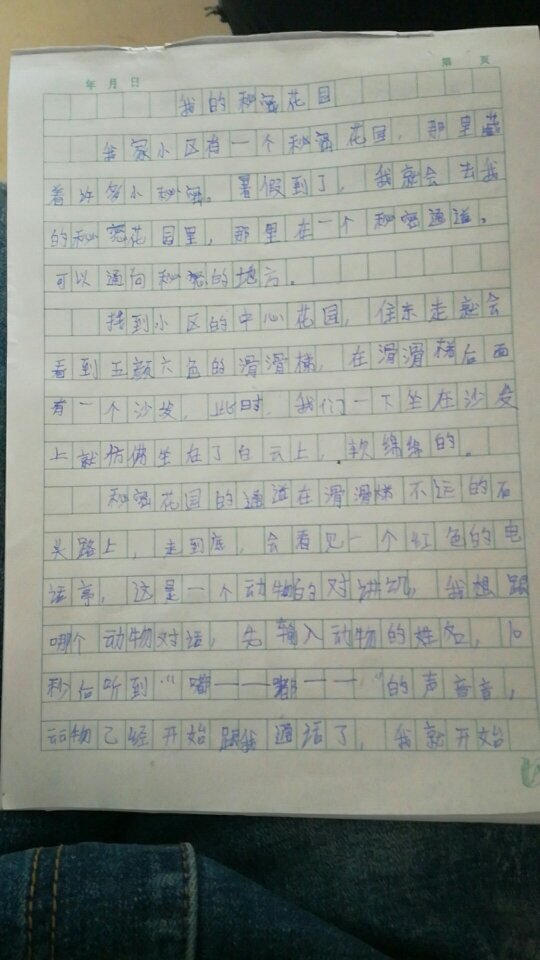 年 月 日 第 页
我的秘密花园
我家小区有一个秘密花园，那里藏
着许多小秘密。暑假到了，我就会去我
的秘密花园里，那里在一个秘密通道。
可以通向秘密的地方。
找到小区的中心花园，住东走就会
看到五颜六色的滑滑梯，在滑滑梯后面
有一个沙发，此时，我们一下坐在沙发
上就仿佛坐在了白云上，软绵绵的。
秘密花园的通道在滑滑梯不远的石
头路上，走到底，会看见一个红色的电
话亭，这是一个动物的对讲机，我想跟
哪个动物对话，先输入动物的姓名，10
秒后听到“嘟——嘟——”的声音音，
动物已经开始跟我通话了，我就开始